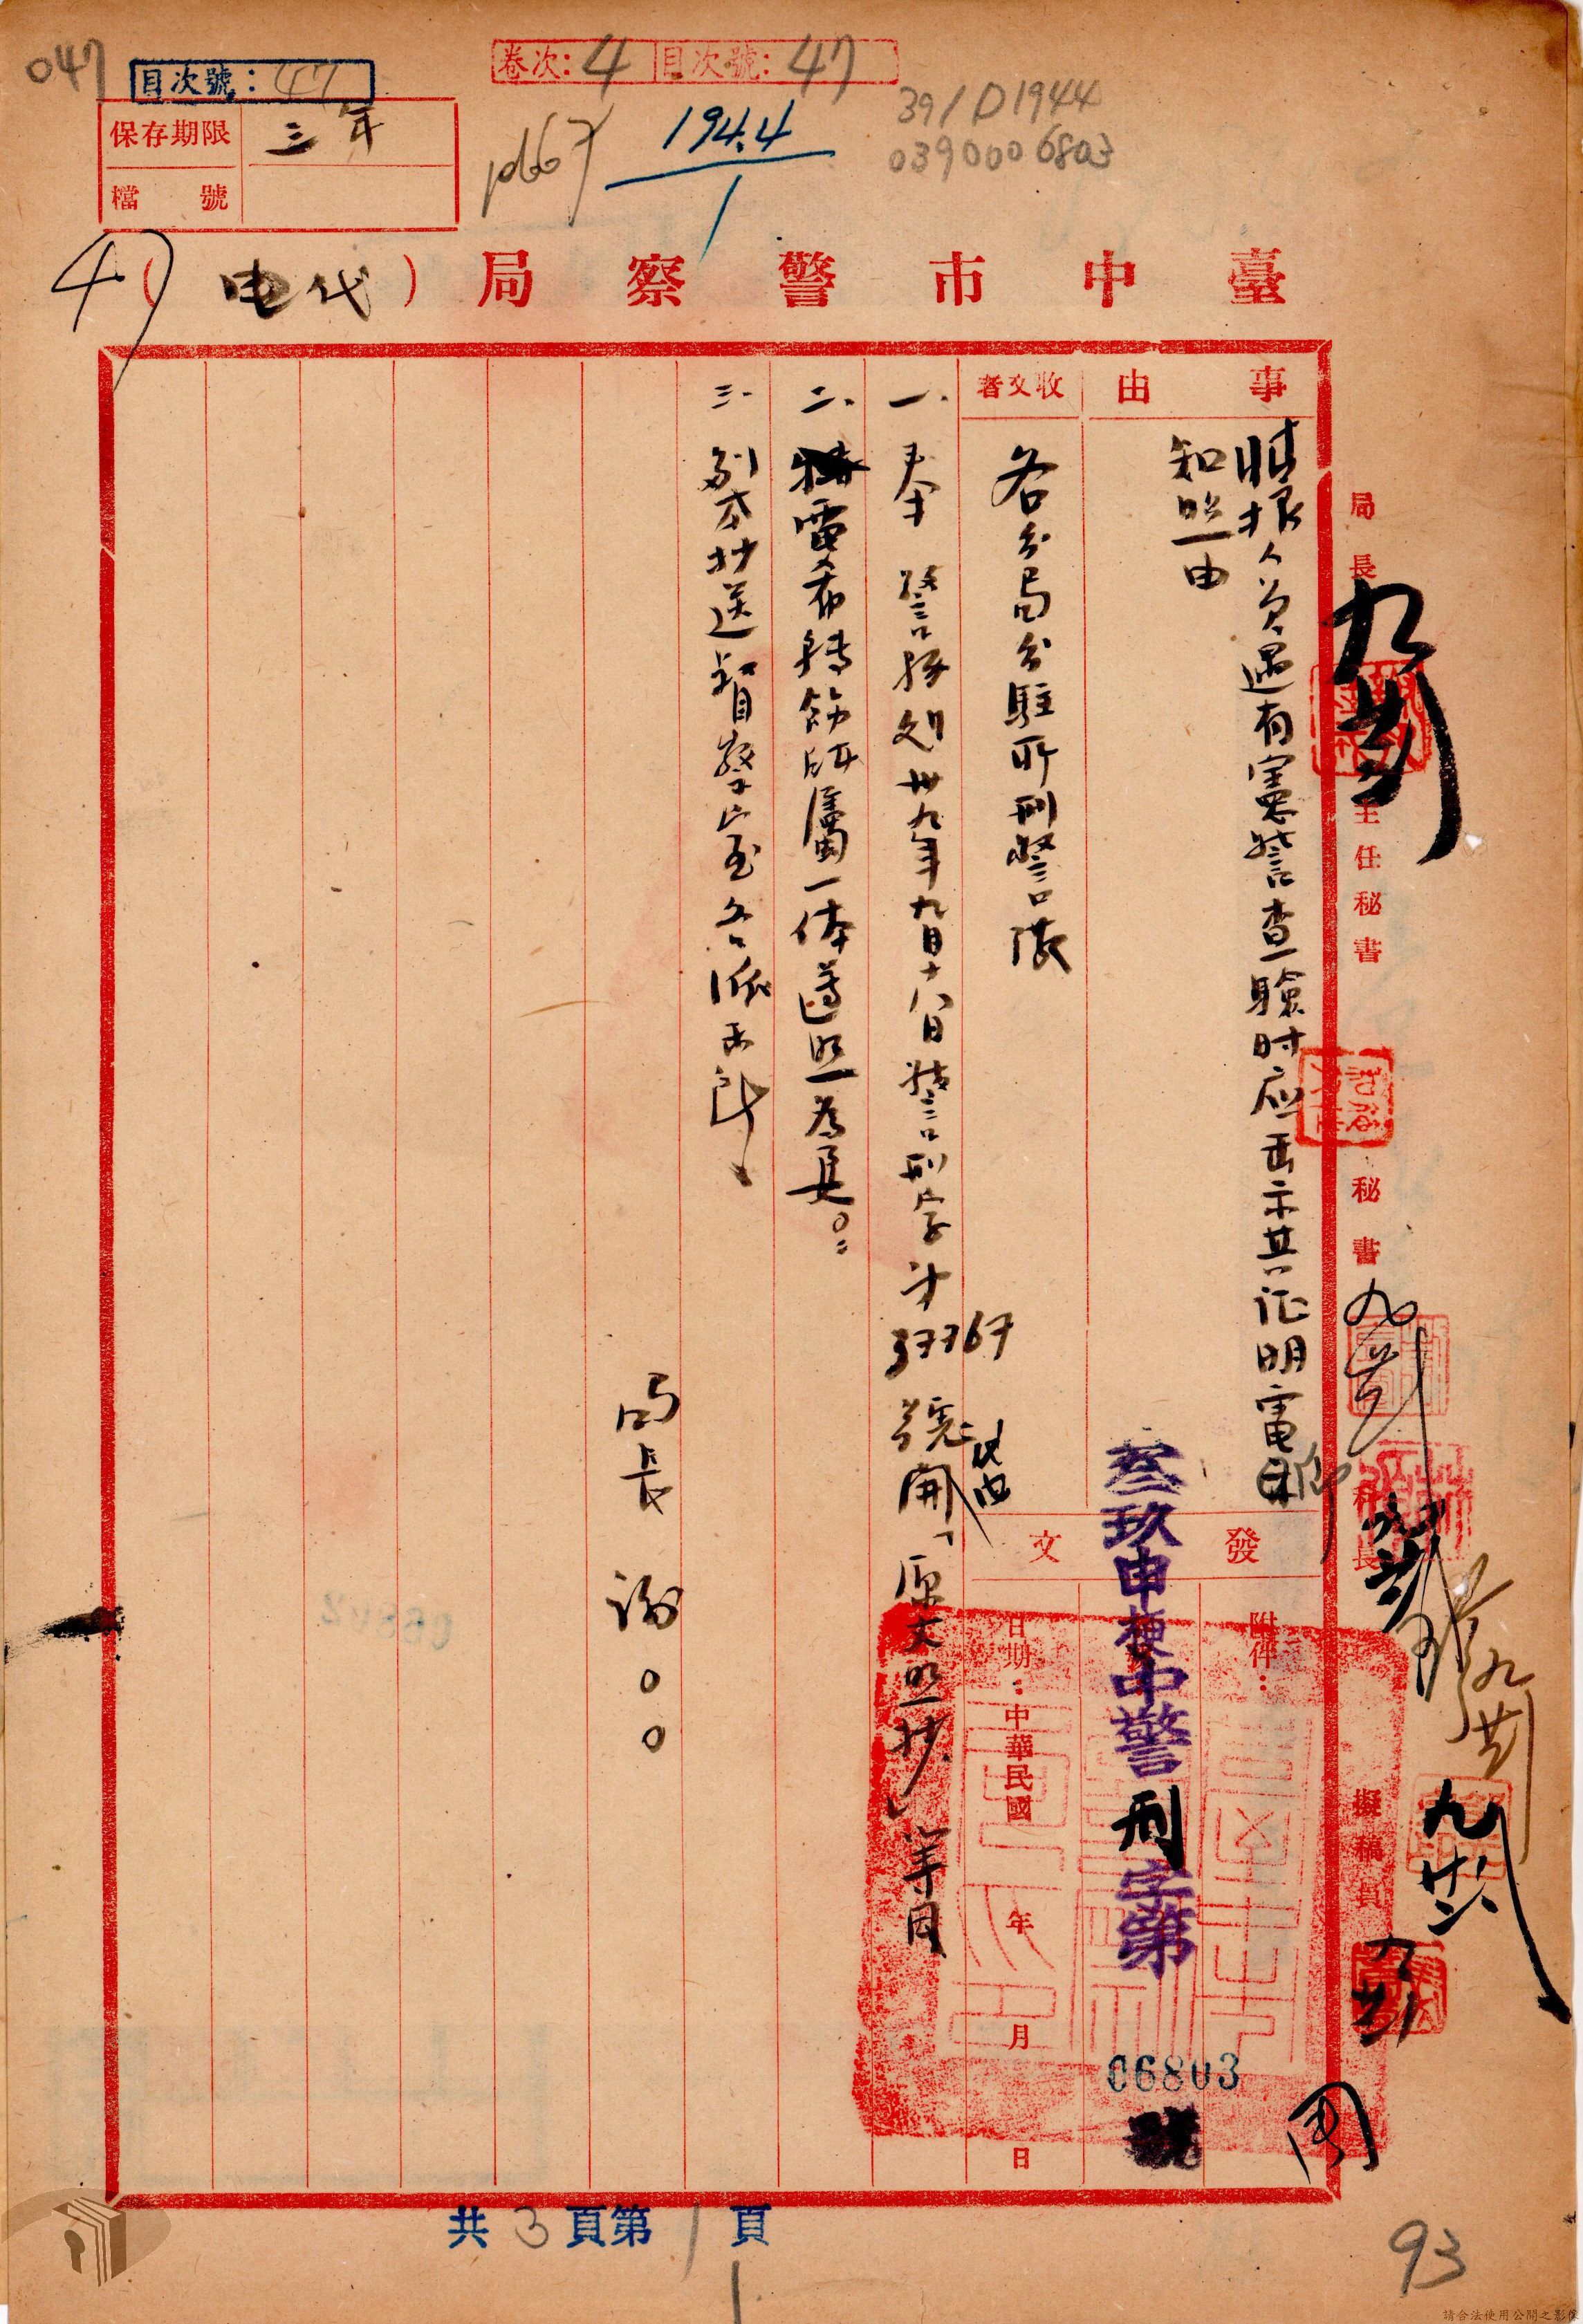 047
目次號：47
卷次：4 目次號：47
保存期限 三年
檔號
194.4
1
391D1944
0390006803
47
臺中市警察局（代电）
事由
携械人員遇有憲警查驗时应出示其证明電希
知照由
收文者
各分局分駐所刑警隊
發文
附件：
叁玖申梗中警刑字第
06803
號
日期：中華民國 年 月 日
一、奉 警務处卅九年九月十八日警刑字才37767號代电開「原文照抄」等因
二、電希轉飭所屬一体遵照為要。
三、副本抄送督察室各派出所
局長 謝○○
局長
主任秘書
秘書
科長
擬稿員
周
共3頁第1頁
1
93
請合法使用公開之影像